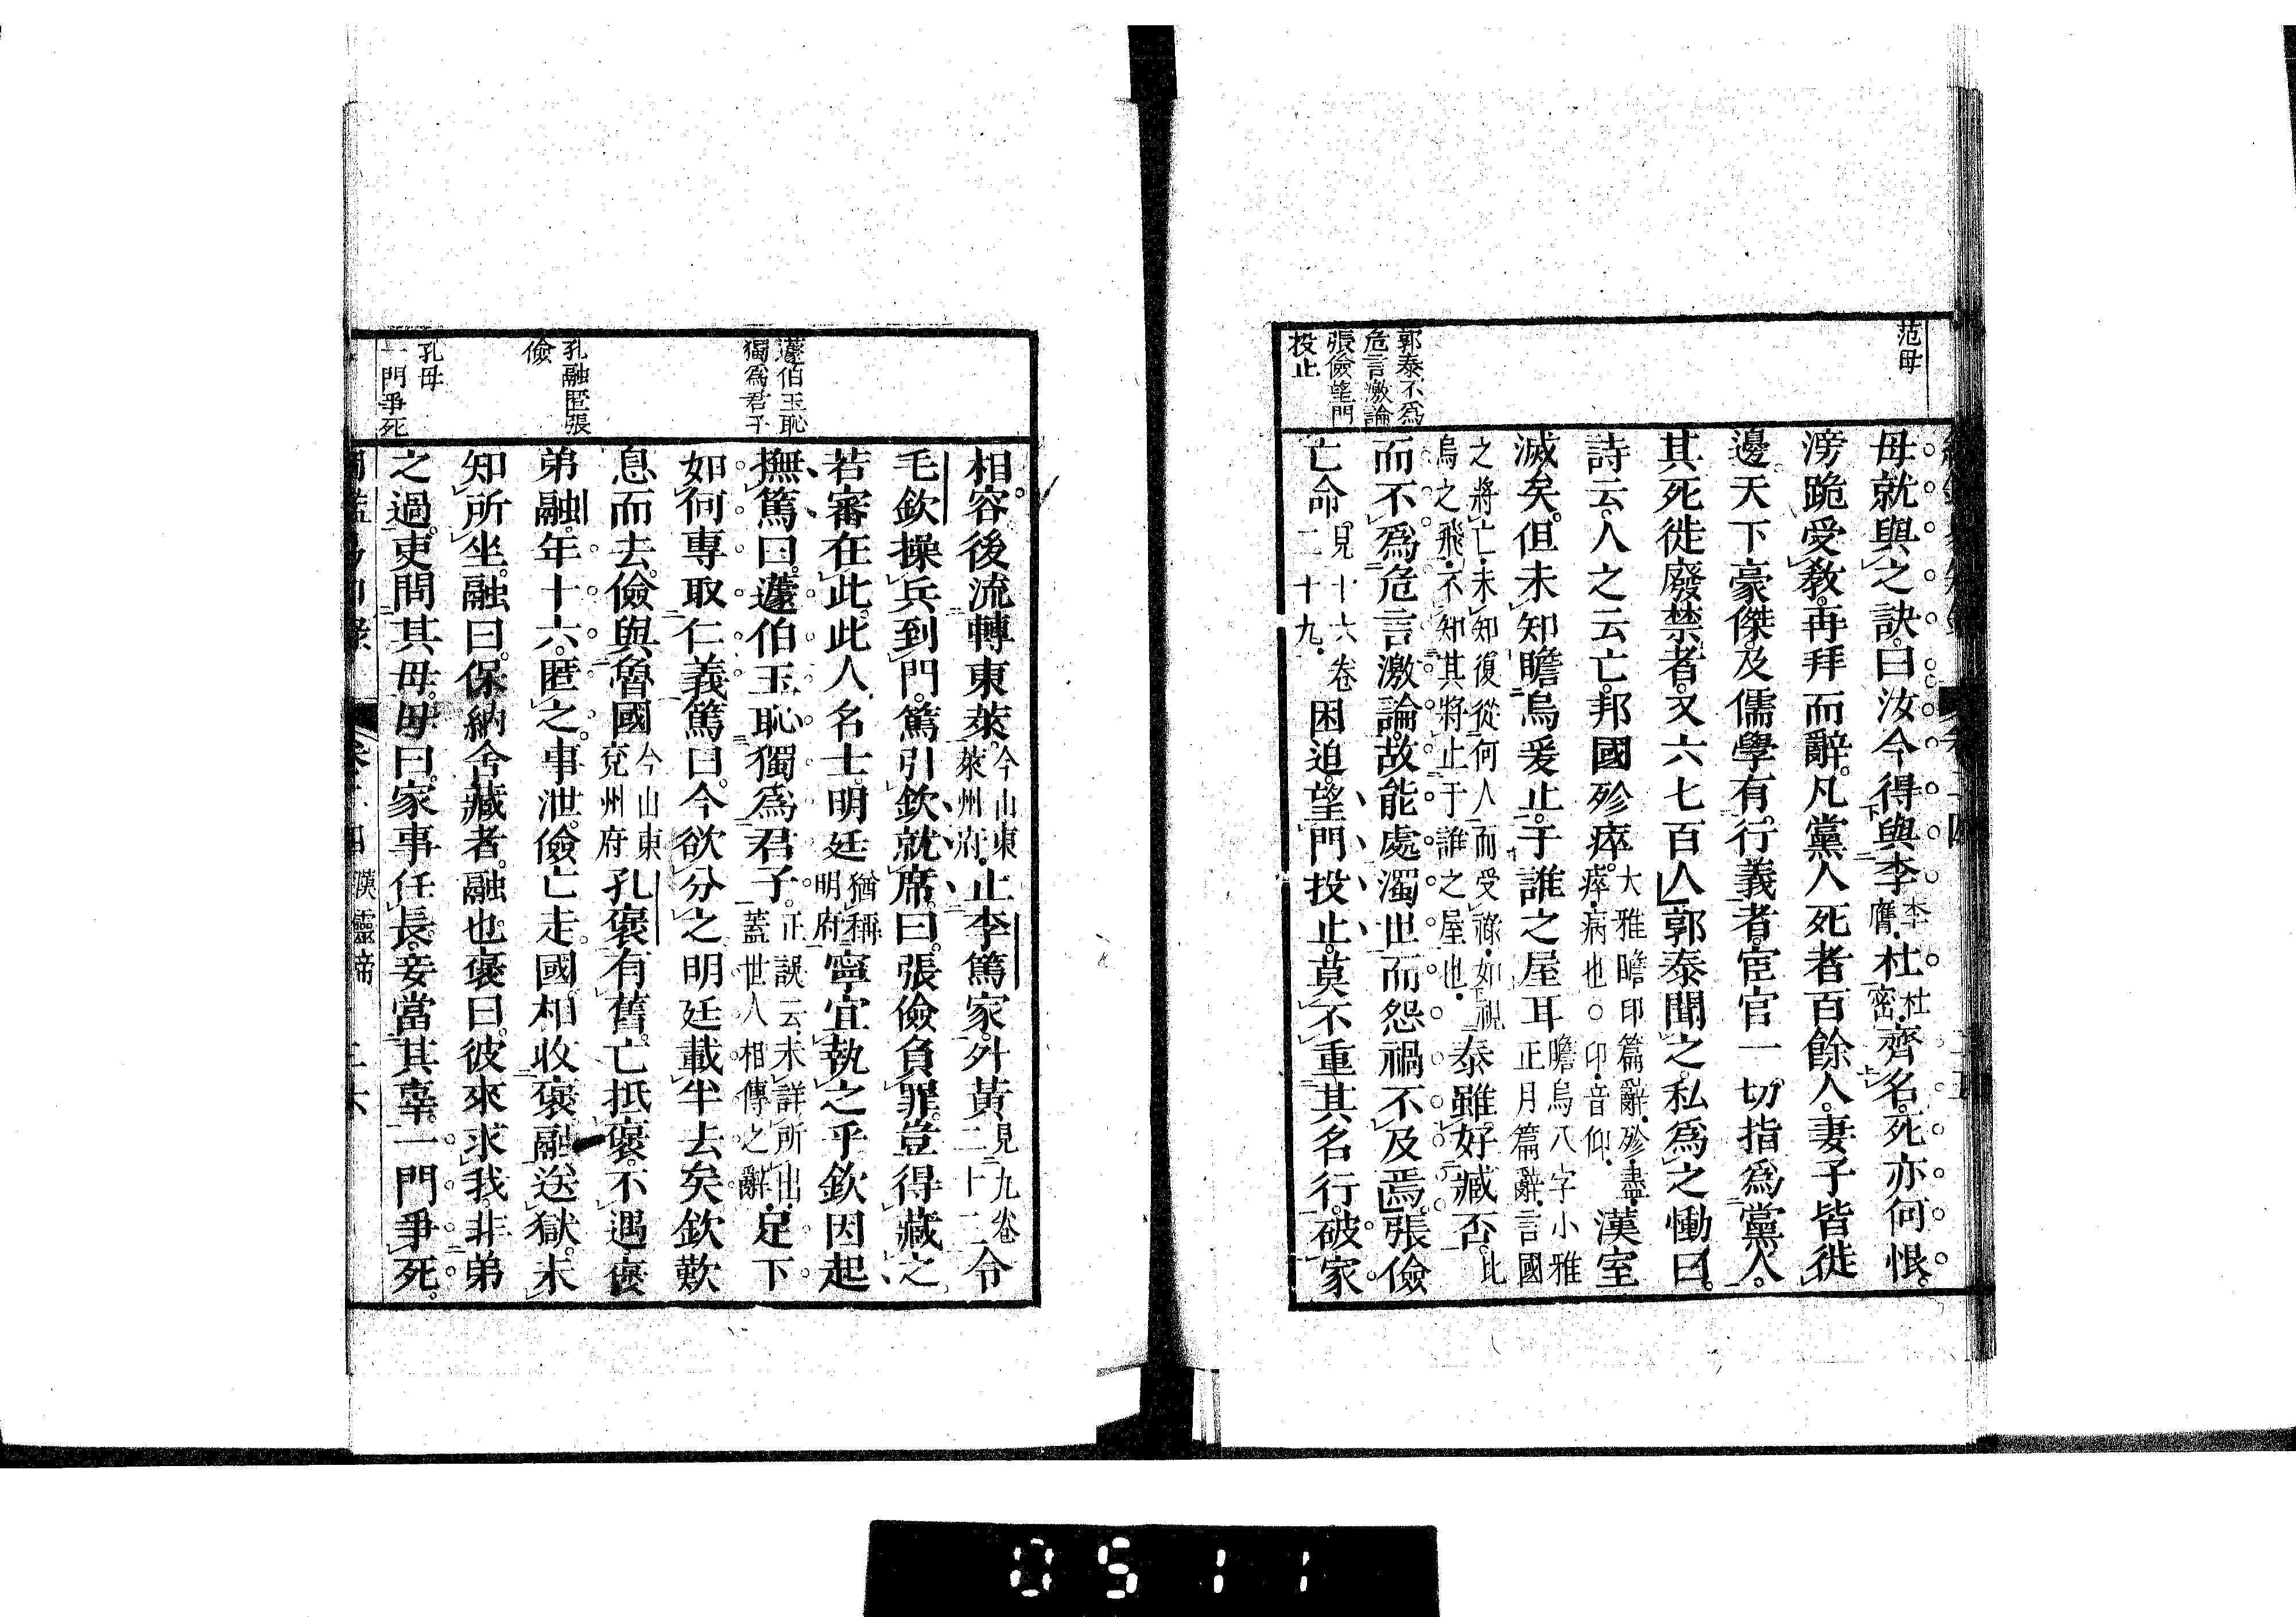 范母
郭泰不爲
危言激論
張儉望門
投止
母就與之訣曰汝今得與李李膺杜杜密齊名死亦何恨
滂跪受教再拜而辭凡黨人死者百餘人妻子皆徙
邊天下豪傑及儒學有行義者宦官一切指爲黨人
其死徙廢禁者又六七百人郭泰聞之私爲之慟曰
詩云人之云亡邦國殄瘁大雅瞻卬篇辭殄盡瘁病也○卬音仰漢室
滅矣但未知瞻烏爰止于誰之屋耳瞻烏八字小雅正月篇辭言國
之將亡未知復從何人而受祿如視烏之飛不知其將止于誰之屋也泰雖好臧否比
而不爲危言激論故能處濁世而怨禍不及焉張儉
亡命見十六卷二十九困迫望門投止莫不重其名行破家
蘧伯玉恥
獨爲君子
孔融匿張
儉
孔母
一門爭死
相容後流轉東萊今山東萊州府止李篤家外黃見九卷二十二令
毛欽操兵到門篤引欽就席曰張儉負罪豈得藏之
若審在此此人名士明廷猶稱明府寧宜執之乎欽因起
撫篤曰蘧伯玉恥獨爲君子正誤云未詳所出蓋世人相傳之辭足下
如何專取仁義篤曰今欲分之明廷載半去矣欽歎
息而去儉與魯國今山東兗州府孔褒有舊亡抵褒不遇褒
弟融年十六匿之事泄儉亡走國相收褒融送獄未
知所坐融曰保納舍藏者融也褒曰彼來求我非弟
之過吏問其母母曰家事任長妾當其辜一門爭死
漢靈帝
0511